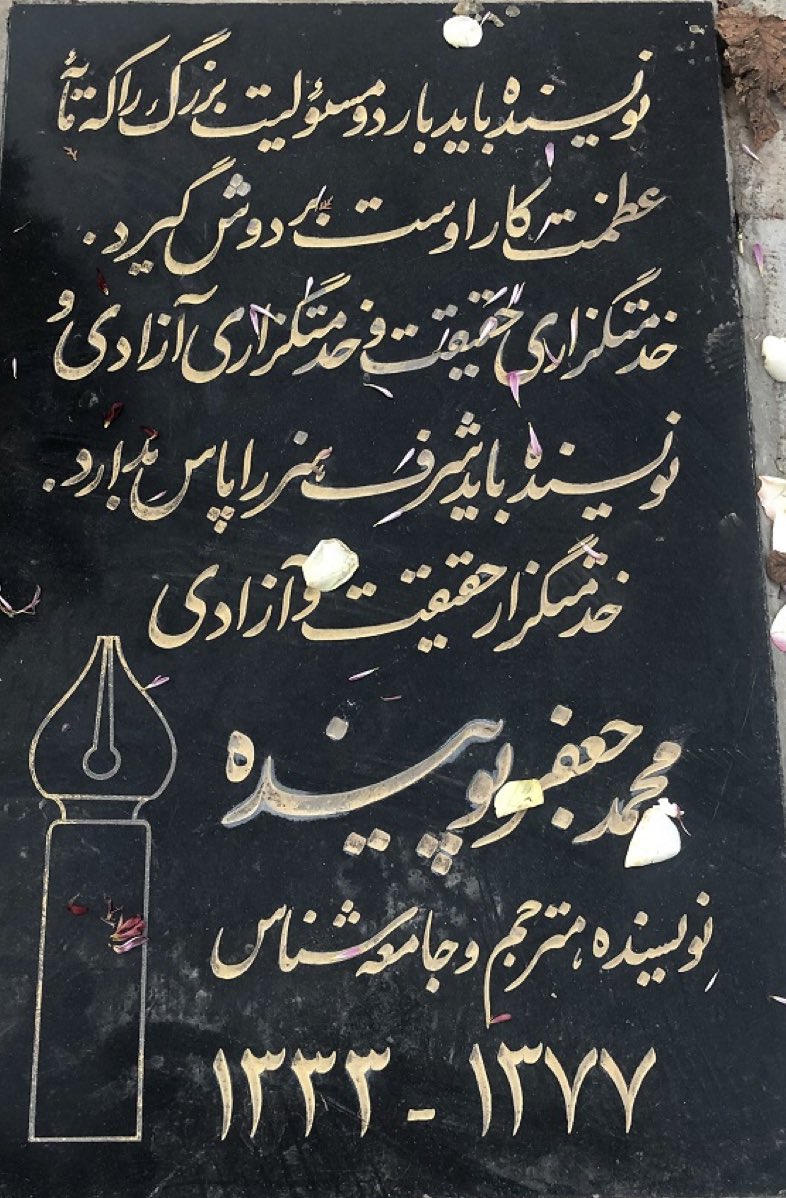 نویسنده باید بار دو مسئولیت بزرگ را که مایهٔ
عظمت کار اوست بر دوش گیرد.
خدمتگزاری حقیقت و خدمتگزاری آزادی و
نویسنده باید شرف هنر را پاس بدارد.
خدمتگزار حقیقت و آزادی
محمد جعفر پوینده
نویسنده، مترجم و جامعه شناس
۱۳۳۳ - ۱۳۷۷